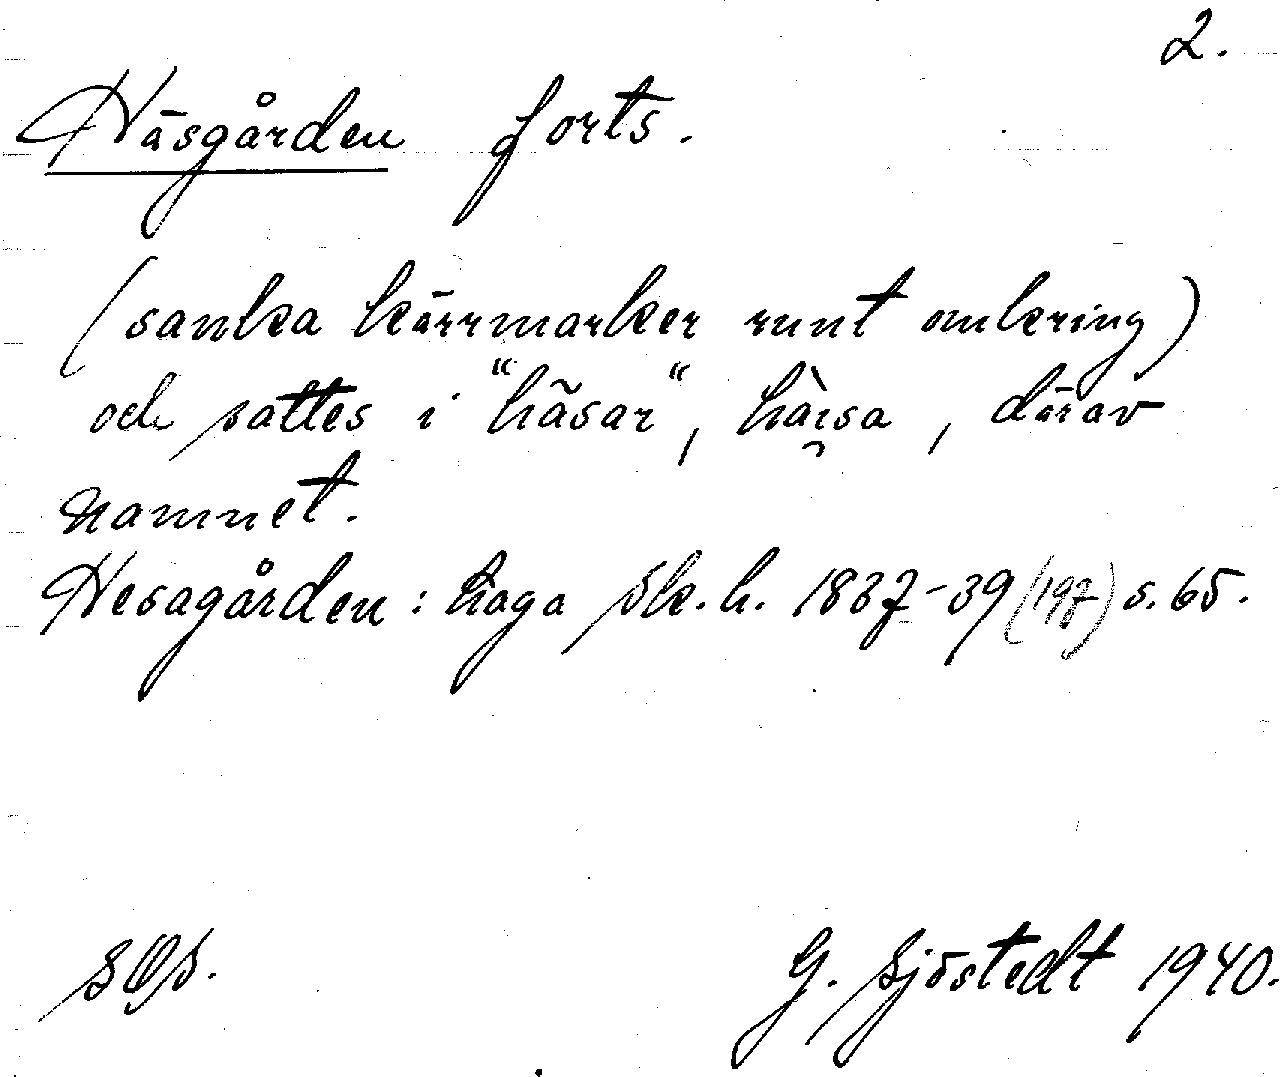 2.
Häsgården forts.
(sanka kärrmarker runt omkring)
och sattes i "häsar", , därav
namnet.
Hesagården: haga Sk. h. 1837-39 (197) s. 65.
G. Sjöstedt 1940.